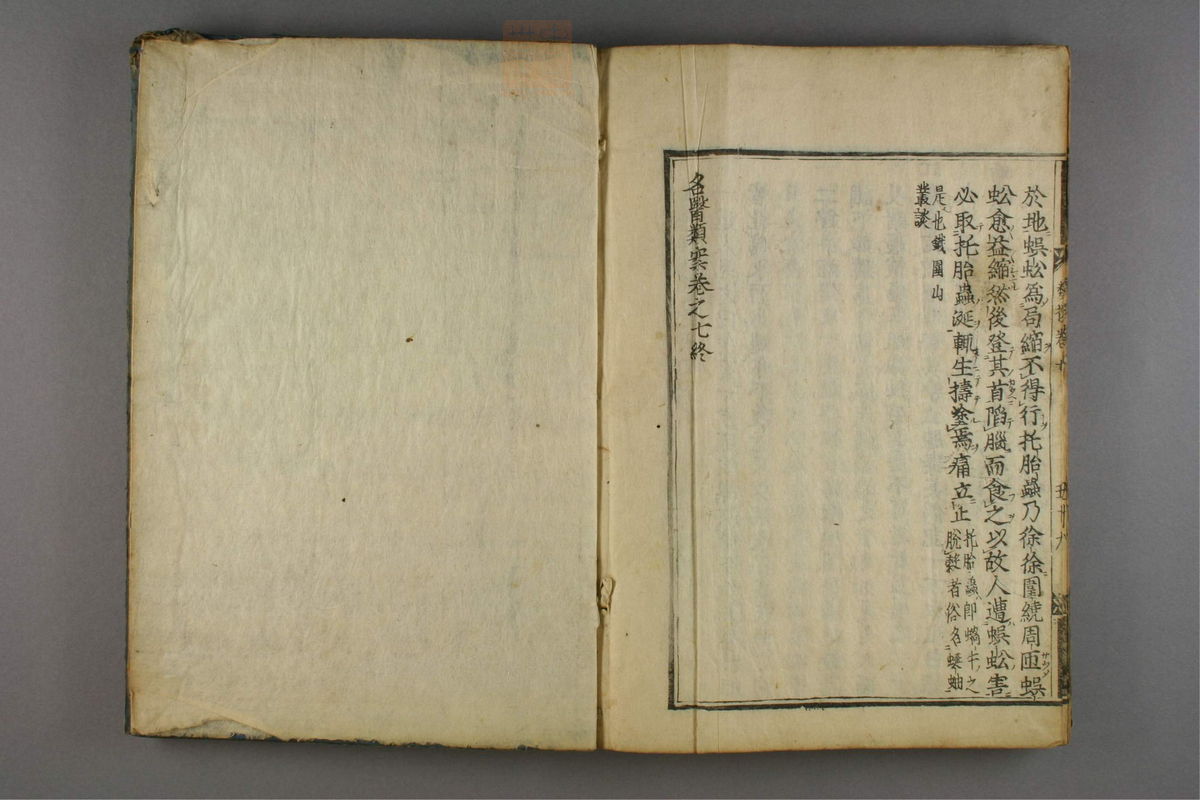 於地蜈蚣為局縮不得行托胎蟲乃徐徐圍繞周匝蜈
蚣愈益縮然後登其首陷腦而食之以故人遭蜈蚣害
必取托胎蟲涎輒生擣塗焉痛立止托胎蟲即蝸牛之
脫殼者俗名蜒蚰
是也鐵圍山
叢談
名醫類案卷之七終